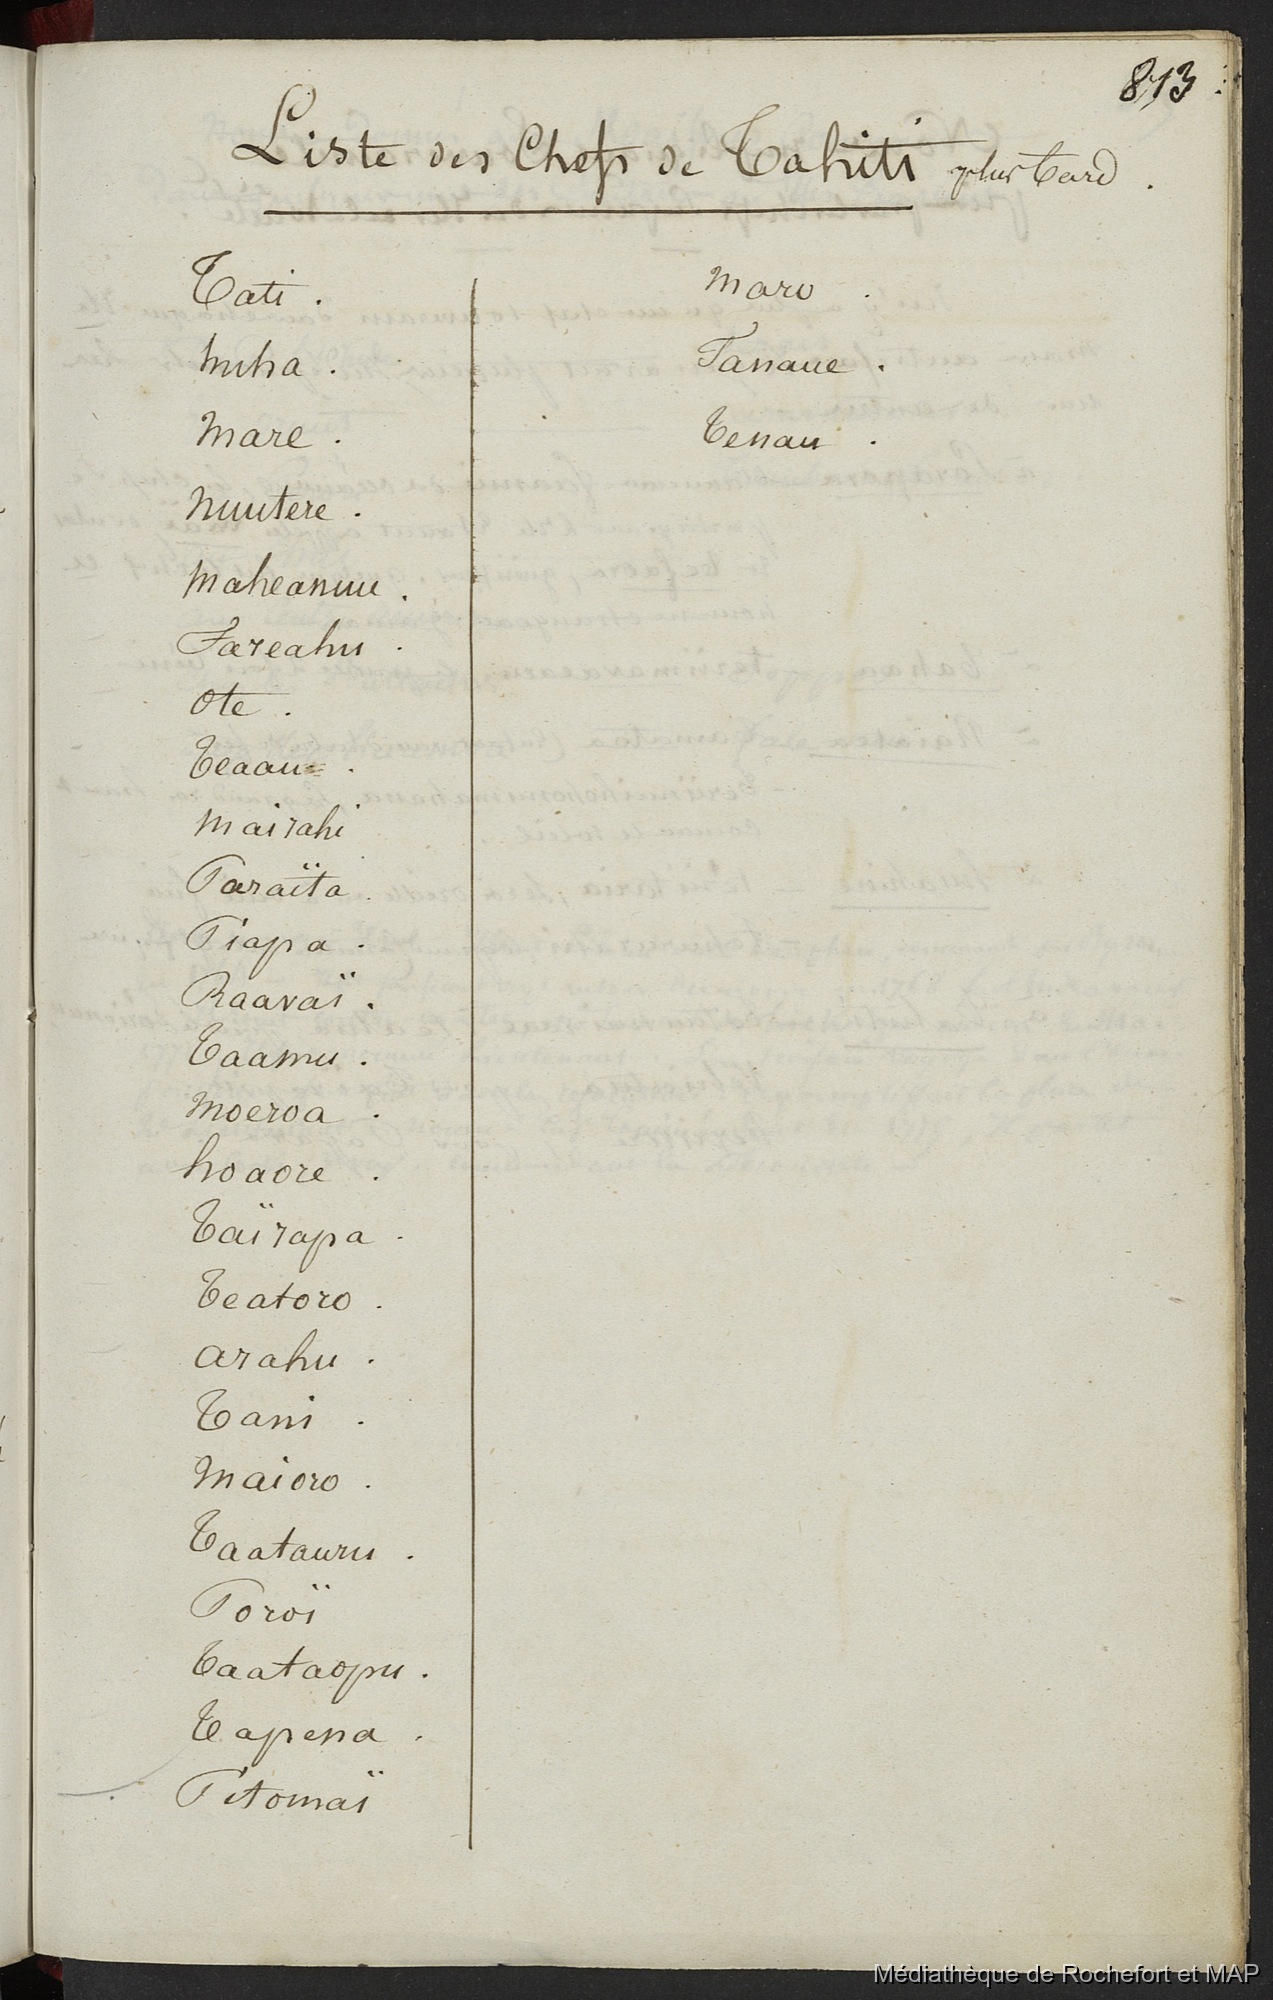 813
Liste des Chefs de Tahiti plus tard.
Tati.
huha.
Mare.
Nuutere.
Maheanuu.
Fareahu.
Ote.
Teaau.
Mairahi
Paraïta.
Piapa.
Raavaï.
Taamu.
Moeroa.
hoaore.
Taïrapa.
Teatoro.
arahu.
Tani.
Maioro.
Taatauru.
Poroï
Taataopu.
Tapena.
Pitomaï
Maro.
Tanaue.
Tenau.
Médiathèque de Rochefort et MAP